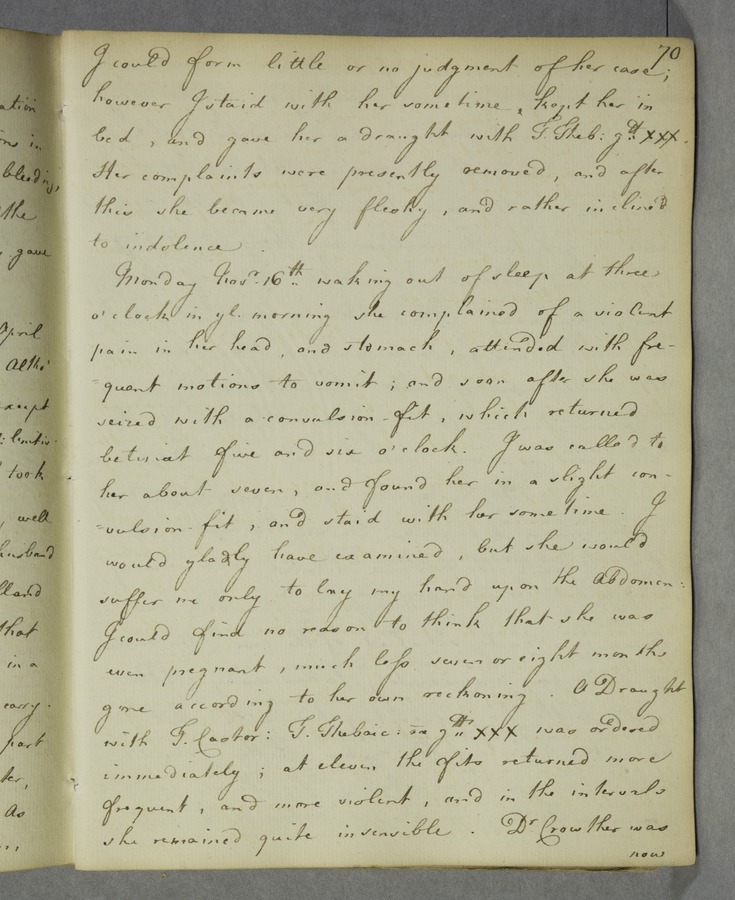 70
I could form little or no judgment of her case;
however I staid with her sometime, kept her in
bed, and gave her a draught with T. Theb: gtt XXX.
Her complaints were presently removed, and after
this she became very fleshy, and rather inclined
to indolence.
Monday Novr. 16th. waking out of sleep at three
o'clock in ye. morning she complained of a violent
pain in her head, and stomach, attended with fre-
=quent motions to vomit; and soon after she was
seized with a convulsion-fit, which returned
betwixt five and six o'clock. I was called to
her about seven, and found her in a slight con-
=vulsion-fit, and staid with her sometime. I
would gladly have examined, but she would
suffer me only to lay my hand upon the Abdomen:
I could find no reason to think that she was
even pregnant, much less seven or eight months
gone according to her own reckoning. A Draught
with T. Castor: T. Thebaic: āa gtts XXX was ordered
immediately; at eleven the fits returned more
frequent, and more violent, and in the intervals
she remained quite insensible. Dr Crowther was
now
ation
ns in
bleeding,
the
gave
April
altho'
except
took
well
husband
that
in a
part
As